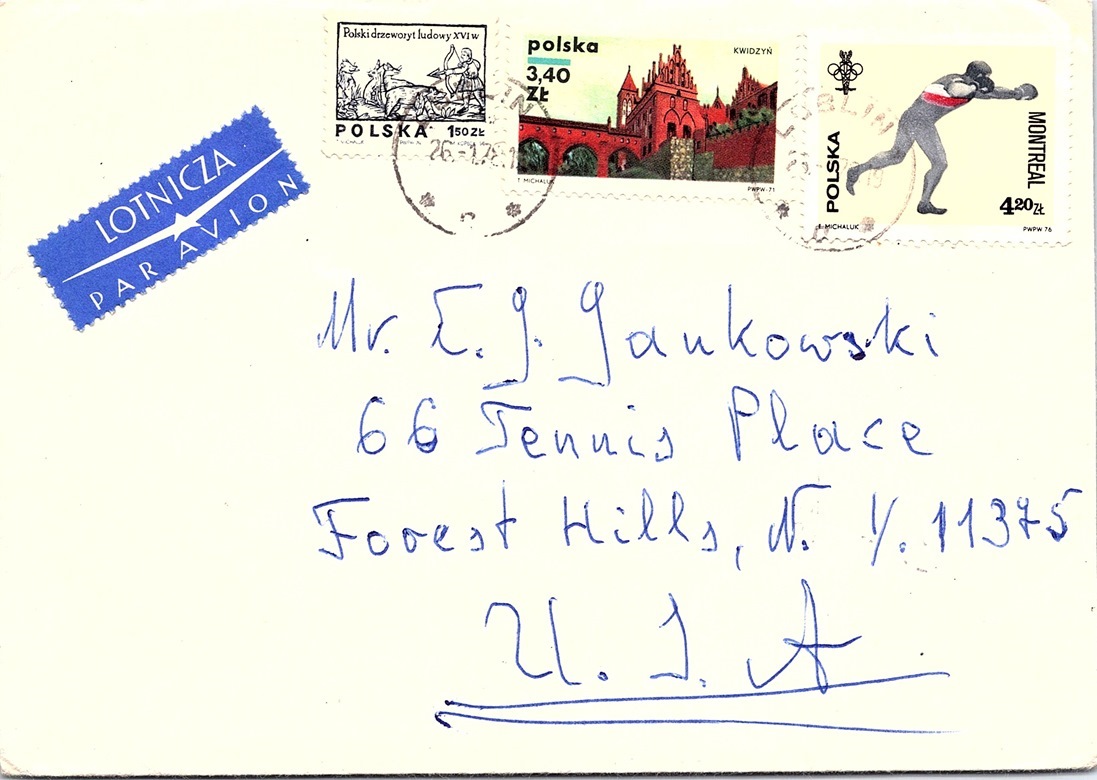 Polski drzeworyt ludowy XVI w
POLSKA 150 ZŁ
polska
3,40
ZŁ
KWIDZYŃ
T. MICHALUK
PWPW-71
POLSKA
MONTREAL
4 20 ZŁ
T. MICHALUK
PWPW 76
LUBLIN
26.-1.78.1
LOTNICZA
PAR AVION
Mr. E. J. Jankowski
66 Tennis Place
Forest Hills, N. Y. 11375
U. S. A